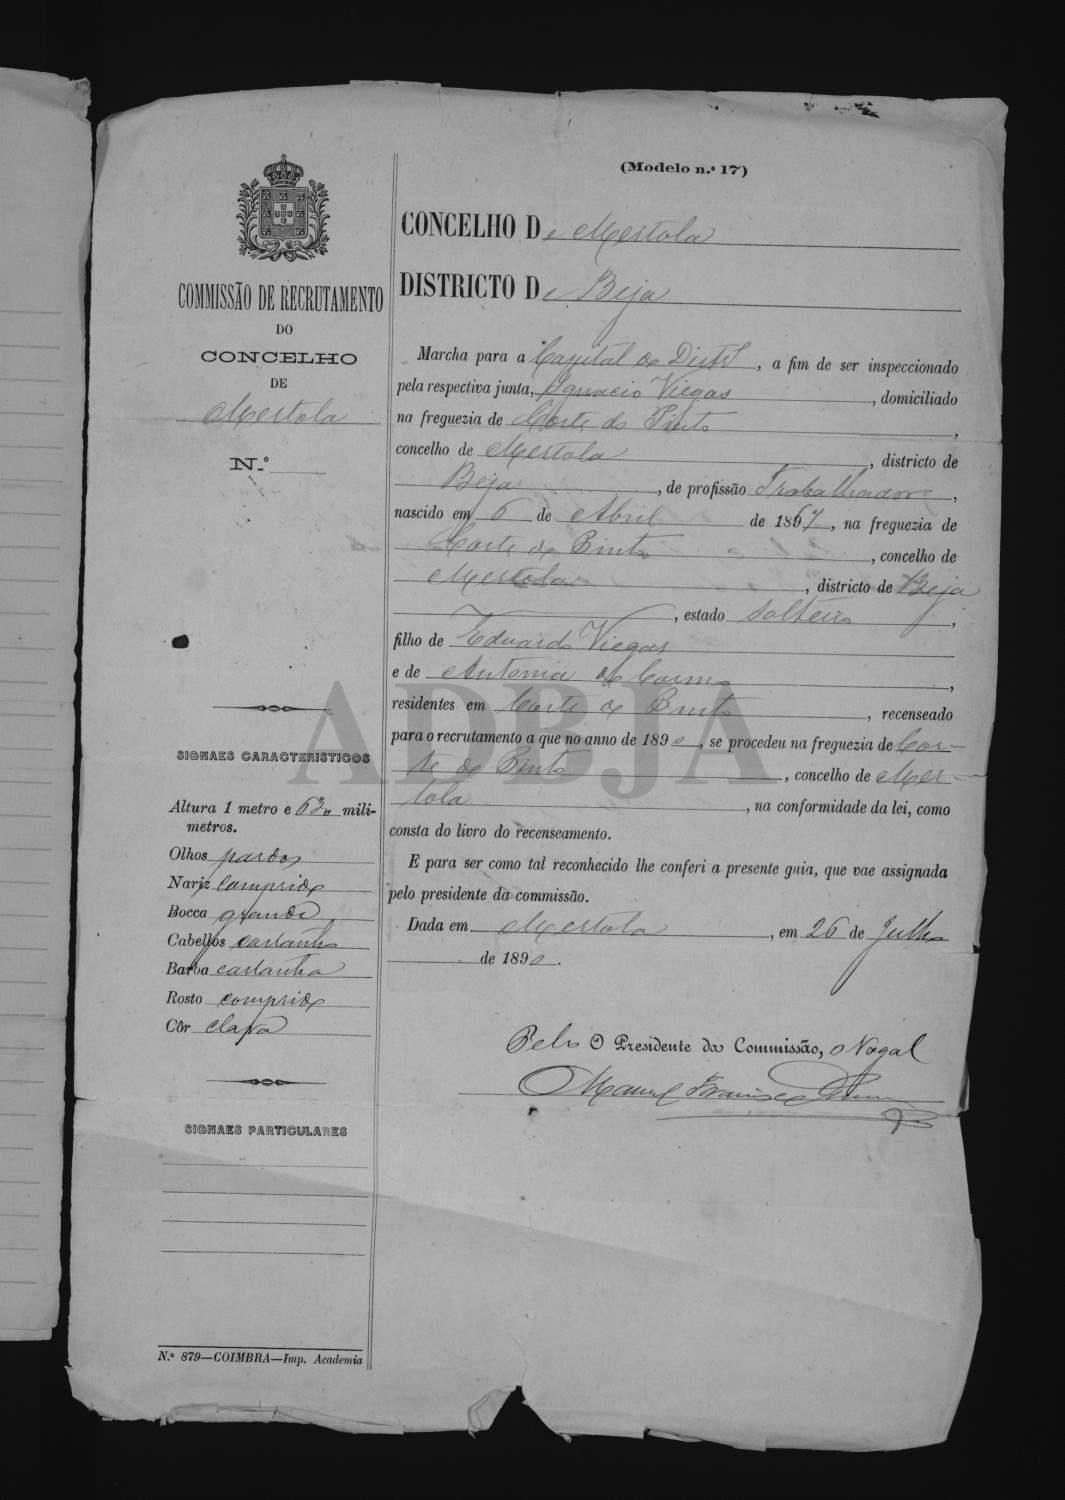 (Modelo n.º 17)
COMMISSÃO DE RECRUTAMENTO
DO
CONCELHO
DE
Mertola
N.º
SIGNAES CARACTERISTICOS
Altura 1 metro e 630 mili-
metros.
Olhos pardos
Nariz comprido
Bocca grande
Cabellos castanhos
Barba castanha
Rosto comprido
Côr clara
SIGNAES PARTICULARES
N.º 879—COIMBRA—Imp. Academia
CONCELHO De Mertola
DISTRICTO De Beja
Marcha para a Capital do Distº, a fim de ser inspeccionado
pela respectiva junta, Ignacio Viegas, domiciliado
na freguezia de Corte do Pinto,
concelho de Mertola, districto de
Beja, de profissão Trabalhador,
nascido em 6 de Abril de 1867, na freguezia de
Corte do Pinto, concelho de
Mertola, districto de Beja
, estado solteiro,
filho de Eduardo Viegas
e de Antonia do Carmo,
residentes em Corte do Pinto, recenseado
para o recrutamento a que no anno de 1890, se procedeu na freguezia de Cor-
te do Pinto, concelho de Mer-
tola, na conformidade da lei, como
consta do livro do recenseamento.
E para ser como tal reconhecido lhe conferi a presente guia, que vae assignada
pelo presidente da commissão.
Dada em Mertola, em 26 de Julho
de 1890.
Pelo O Presidente da Commissão, o Vogal
Manuel Francisco
ADBJA